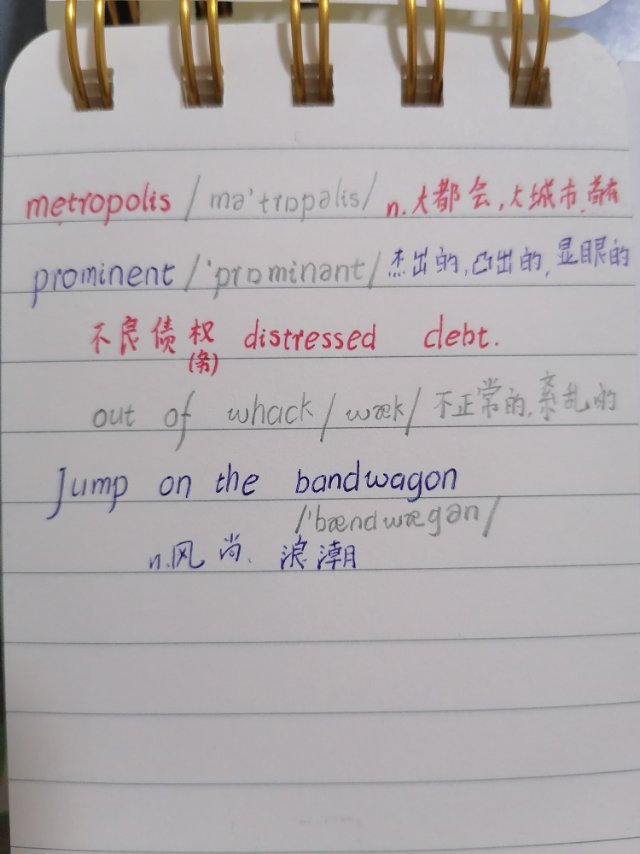 metropolis /mə'trɒpəlis/ n.大都会,大城市,首府
prominent /'prɒminənt/ 杰出的,凸出的,显眼的
不良债权 distressed debt.
(务)
out of whack /wæk/ 不正常的,紊乱的
Jump on the bandwagon
/'bændwægən/
n.风尚、浪潮